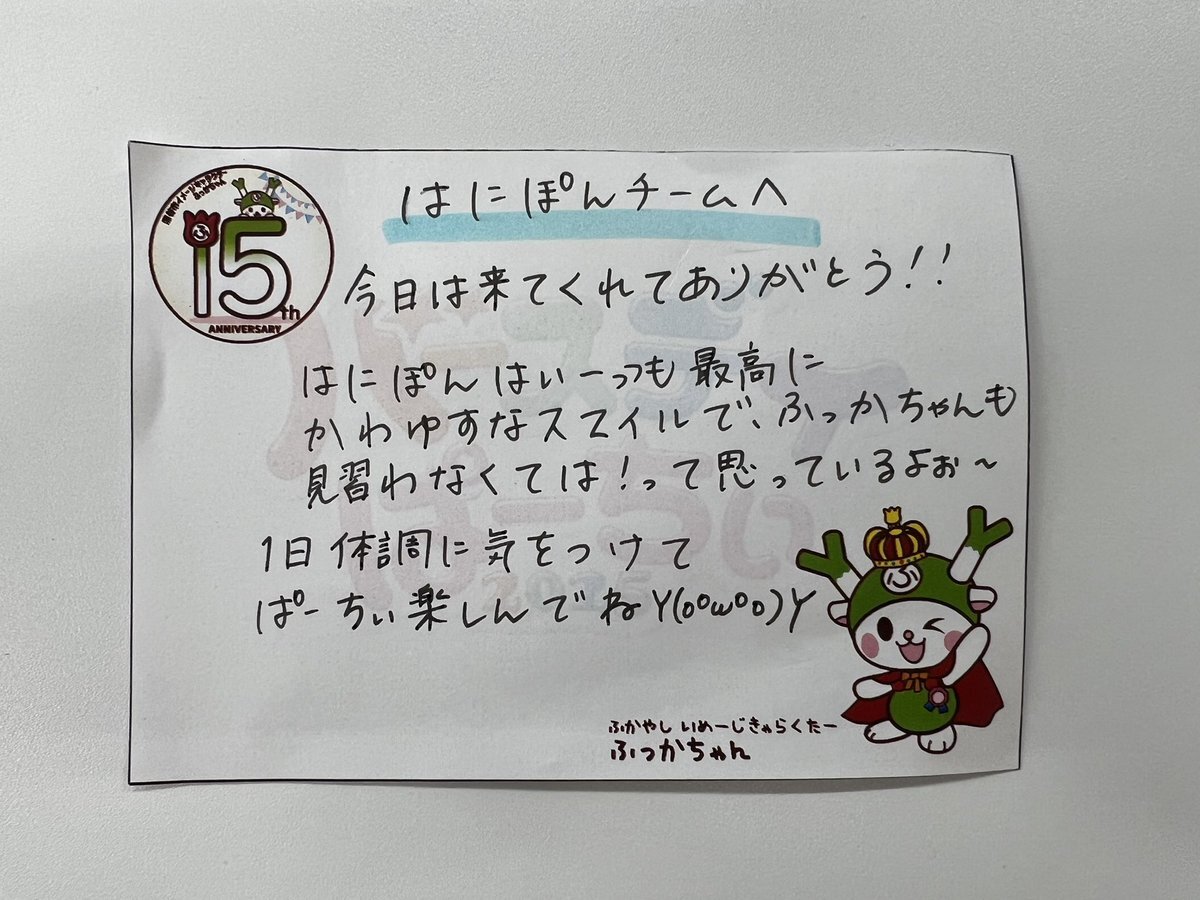 深谷市イメージキャラクター
ふっかちゃん
ふ
15th
ANNIVERSARY
はにぽんチームへ
今日は来てくれてありがとう!!
はにぽんはいーっつも最高に
かわゆすなスマイルで、ふっかちゃんも
見習わなくては!って思っているよぉ~
1日体調に気をつけて
ぱーちぃ楽しんでねY(o°ω°o)Y
ふ
ふかやし いめーじきゃらくたー
ふっかちゃん